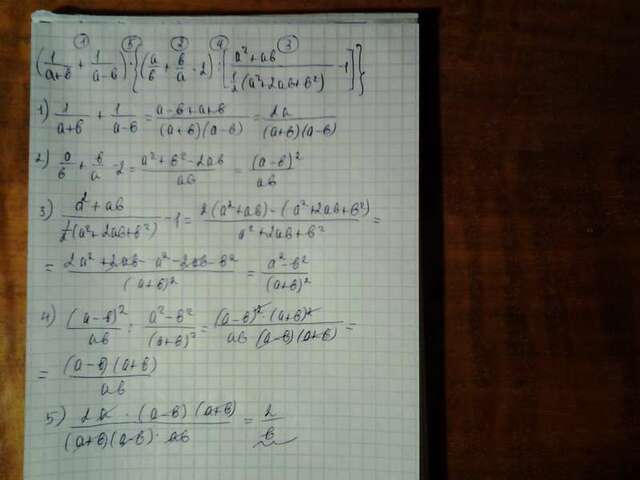 ① ⑤ ② ④ ③
(1/(a+b) + 1/(a-b)) · {(a/b + b/a - 2) : [(a²+ab)/(1/2(a²+2ab+b²)) - 1]}
1) 1/(a+b) + 1/(a-b) = (a-b+a+b)/((a+b)(a-b)) = 2a/((a+b)(a-b))
2) a/b + b/a - 2 = (a²+b²-2ab)/ab = (a-b)²/ab
3) (a²+ab)/(1/2(a²+2ab+b²)) - 1 = (2(a²+ab)-(a²+2ab+b²))/(a²+2ab+b²) =
= (2a²+2ab-a²-2ab-b²)/(a+b)² = (a²-b²)/(a+b)²
4) (a-b)²/ab : (a²-b²)/(a+b)² = ((a-b)²·(a+b)²)/(ab(a-b)(a+b)) =
= ((a-b)(a+b))/ab
5) (2a·(a-b)(a+b))/((a+b)(a-b)·ab) = 2/b